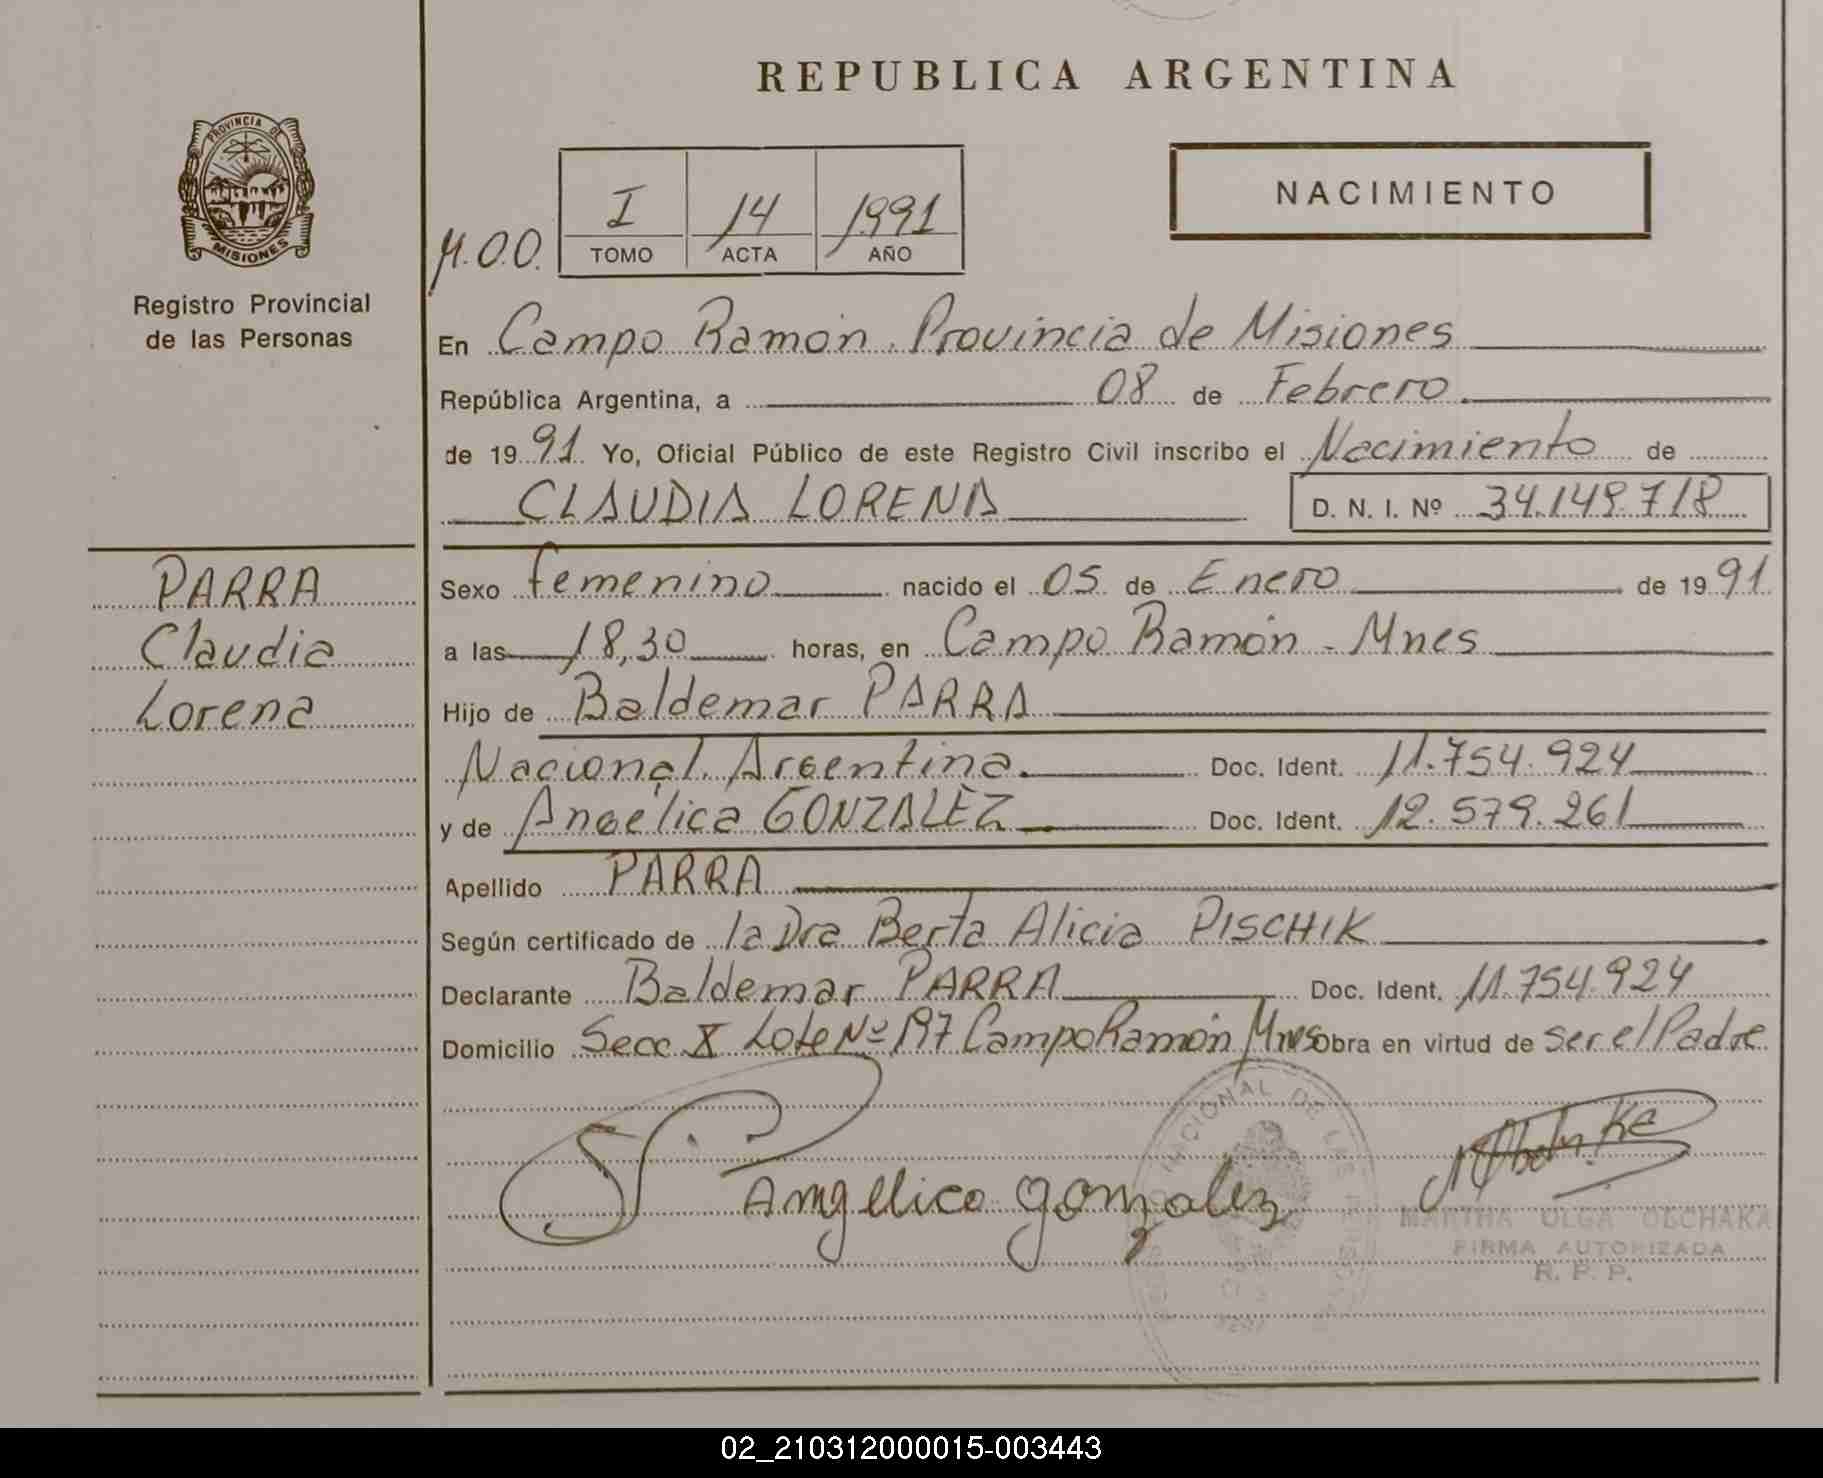 REPUBLICA ARGENTINA
PROVINCIA DE
MISIONES
Registro Provincial
de las Personas
M.O.O.
I 14 1991
TOMO ACTA AÑO
NACIMIENTO
En Campo Ramón. Provincia de Misiones
República Argentina, a 08 de Febrero
de 1991 Yo, Oficial Público de este Registro Civil inscribo el Nacimiento de
CLAUDIA LORENA D. N. I. Nº 34.149.718
PARRA
Claudia
Lorena
Sexo femenino nacido el 05 de Enero de 1991
a las 18,30 horas, en Campo Ramón - Mnes
Hijo de Baldemar PARRA
Nacional. Argentina. Doc. Ident. 11.754.924
y de Angélica GONZALEZ Doc. Ident. 12.579.261
Apellido PARRA
Según certificado de la Dra Berta Alicia PISCHIK
Declarante Baldemar PARRA Doc. Ident. 11.754.924
Domicilio Secc X Lote Nº 197 Campo Ramón Mnes obra en virtud de ser el Padre
Angelica gonzalez
NACIONAL DE LAS
MARTHA OLGA OBCHAKA
FIRMA AUTORIZADA
R. P. P.
02_210312000015-003443